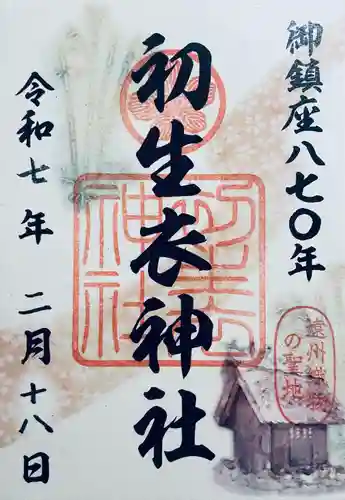 御鎮座八七〇年
初生衣神社
令和七年 二月十八日
初生衣神社
遠州織物
の聖地